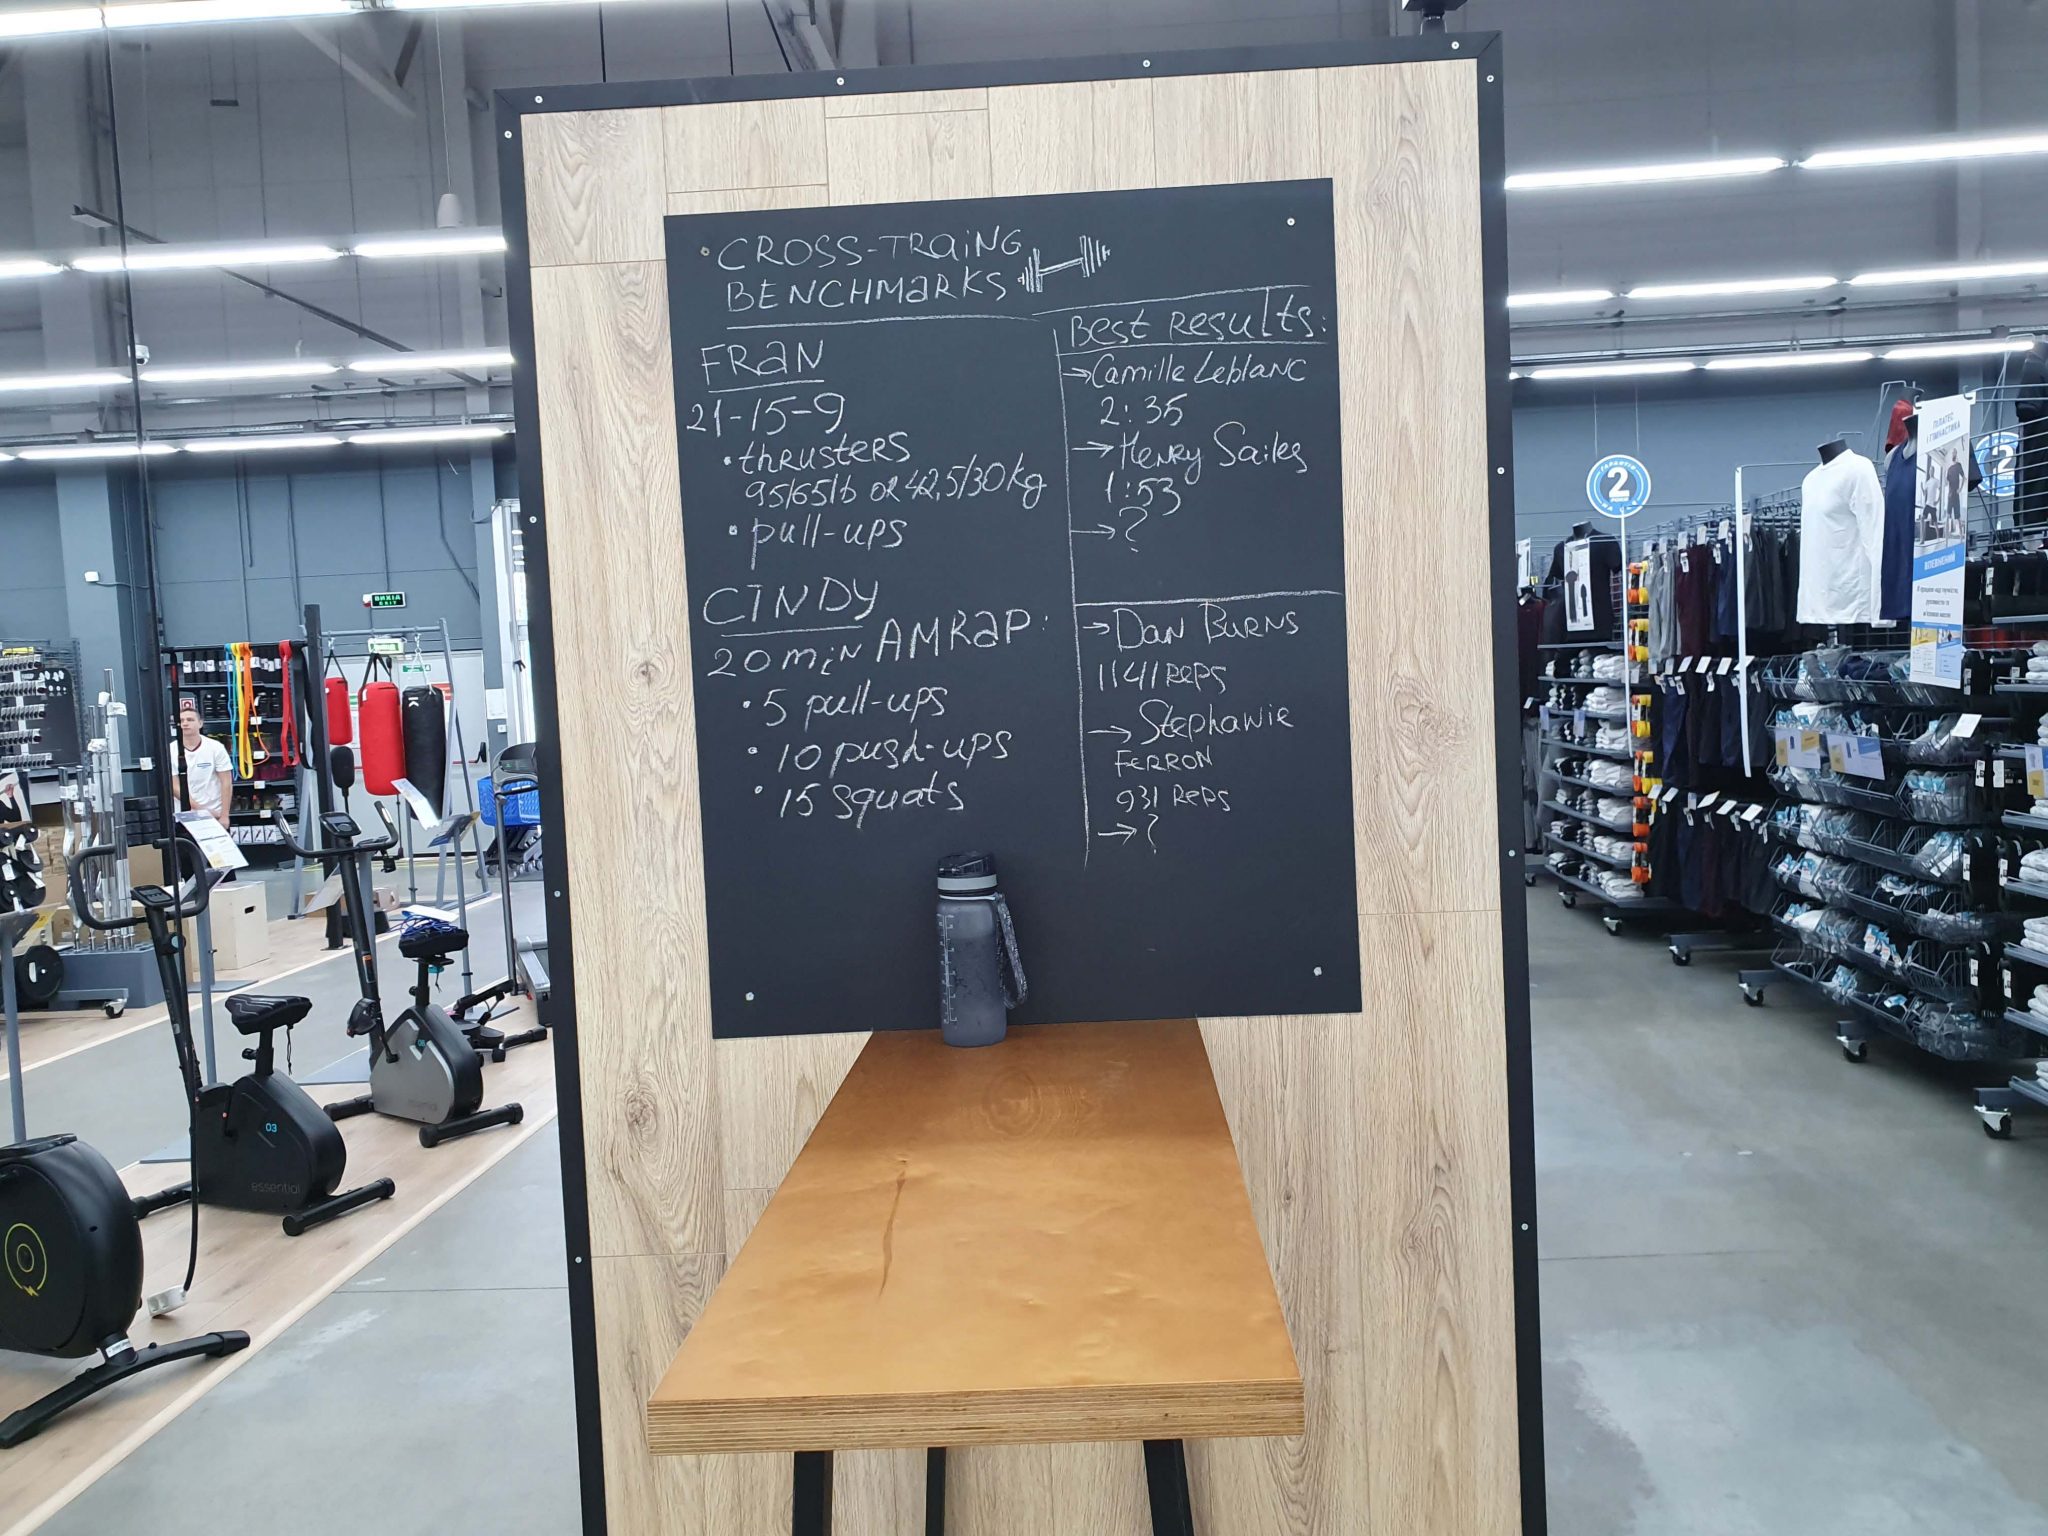 CROSS-TRaiNG
BENCHMaRKS
FRaN
21-15-9
• thRusteRs
95/65lb oR 42,5/30kg
• pull-ups
CINDY
20 miN AMRaP:
• 5 pull-ups
• 10 push-ups
• 15 squats
Best Results:
→ Camille LeblaNC
2:35
→ HeNRy Sailes
1:53
→ ?
→ DaN BURNS
1141 Reps
→ StephaNie
FERRON
931 Reps
→ ?
ВИХІД
EXIT
03
essential
ГАРАНТІЯ
2
РОКИ
ПІЛАТЕС
І ГІМНАСТИКА
2
ВПЕВНЕНИЙ